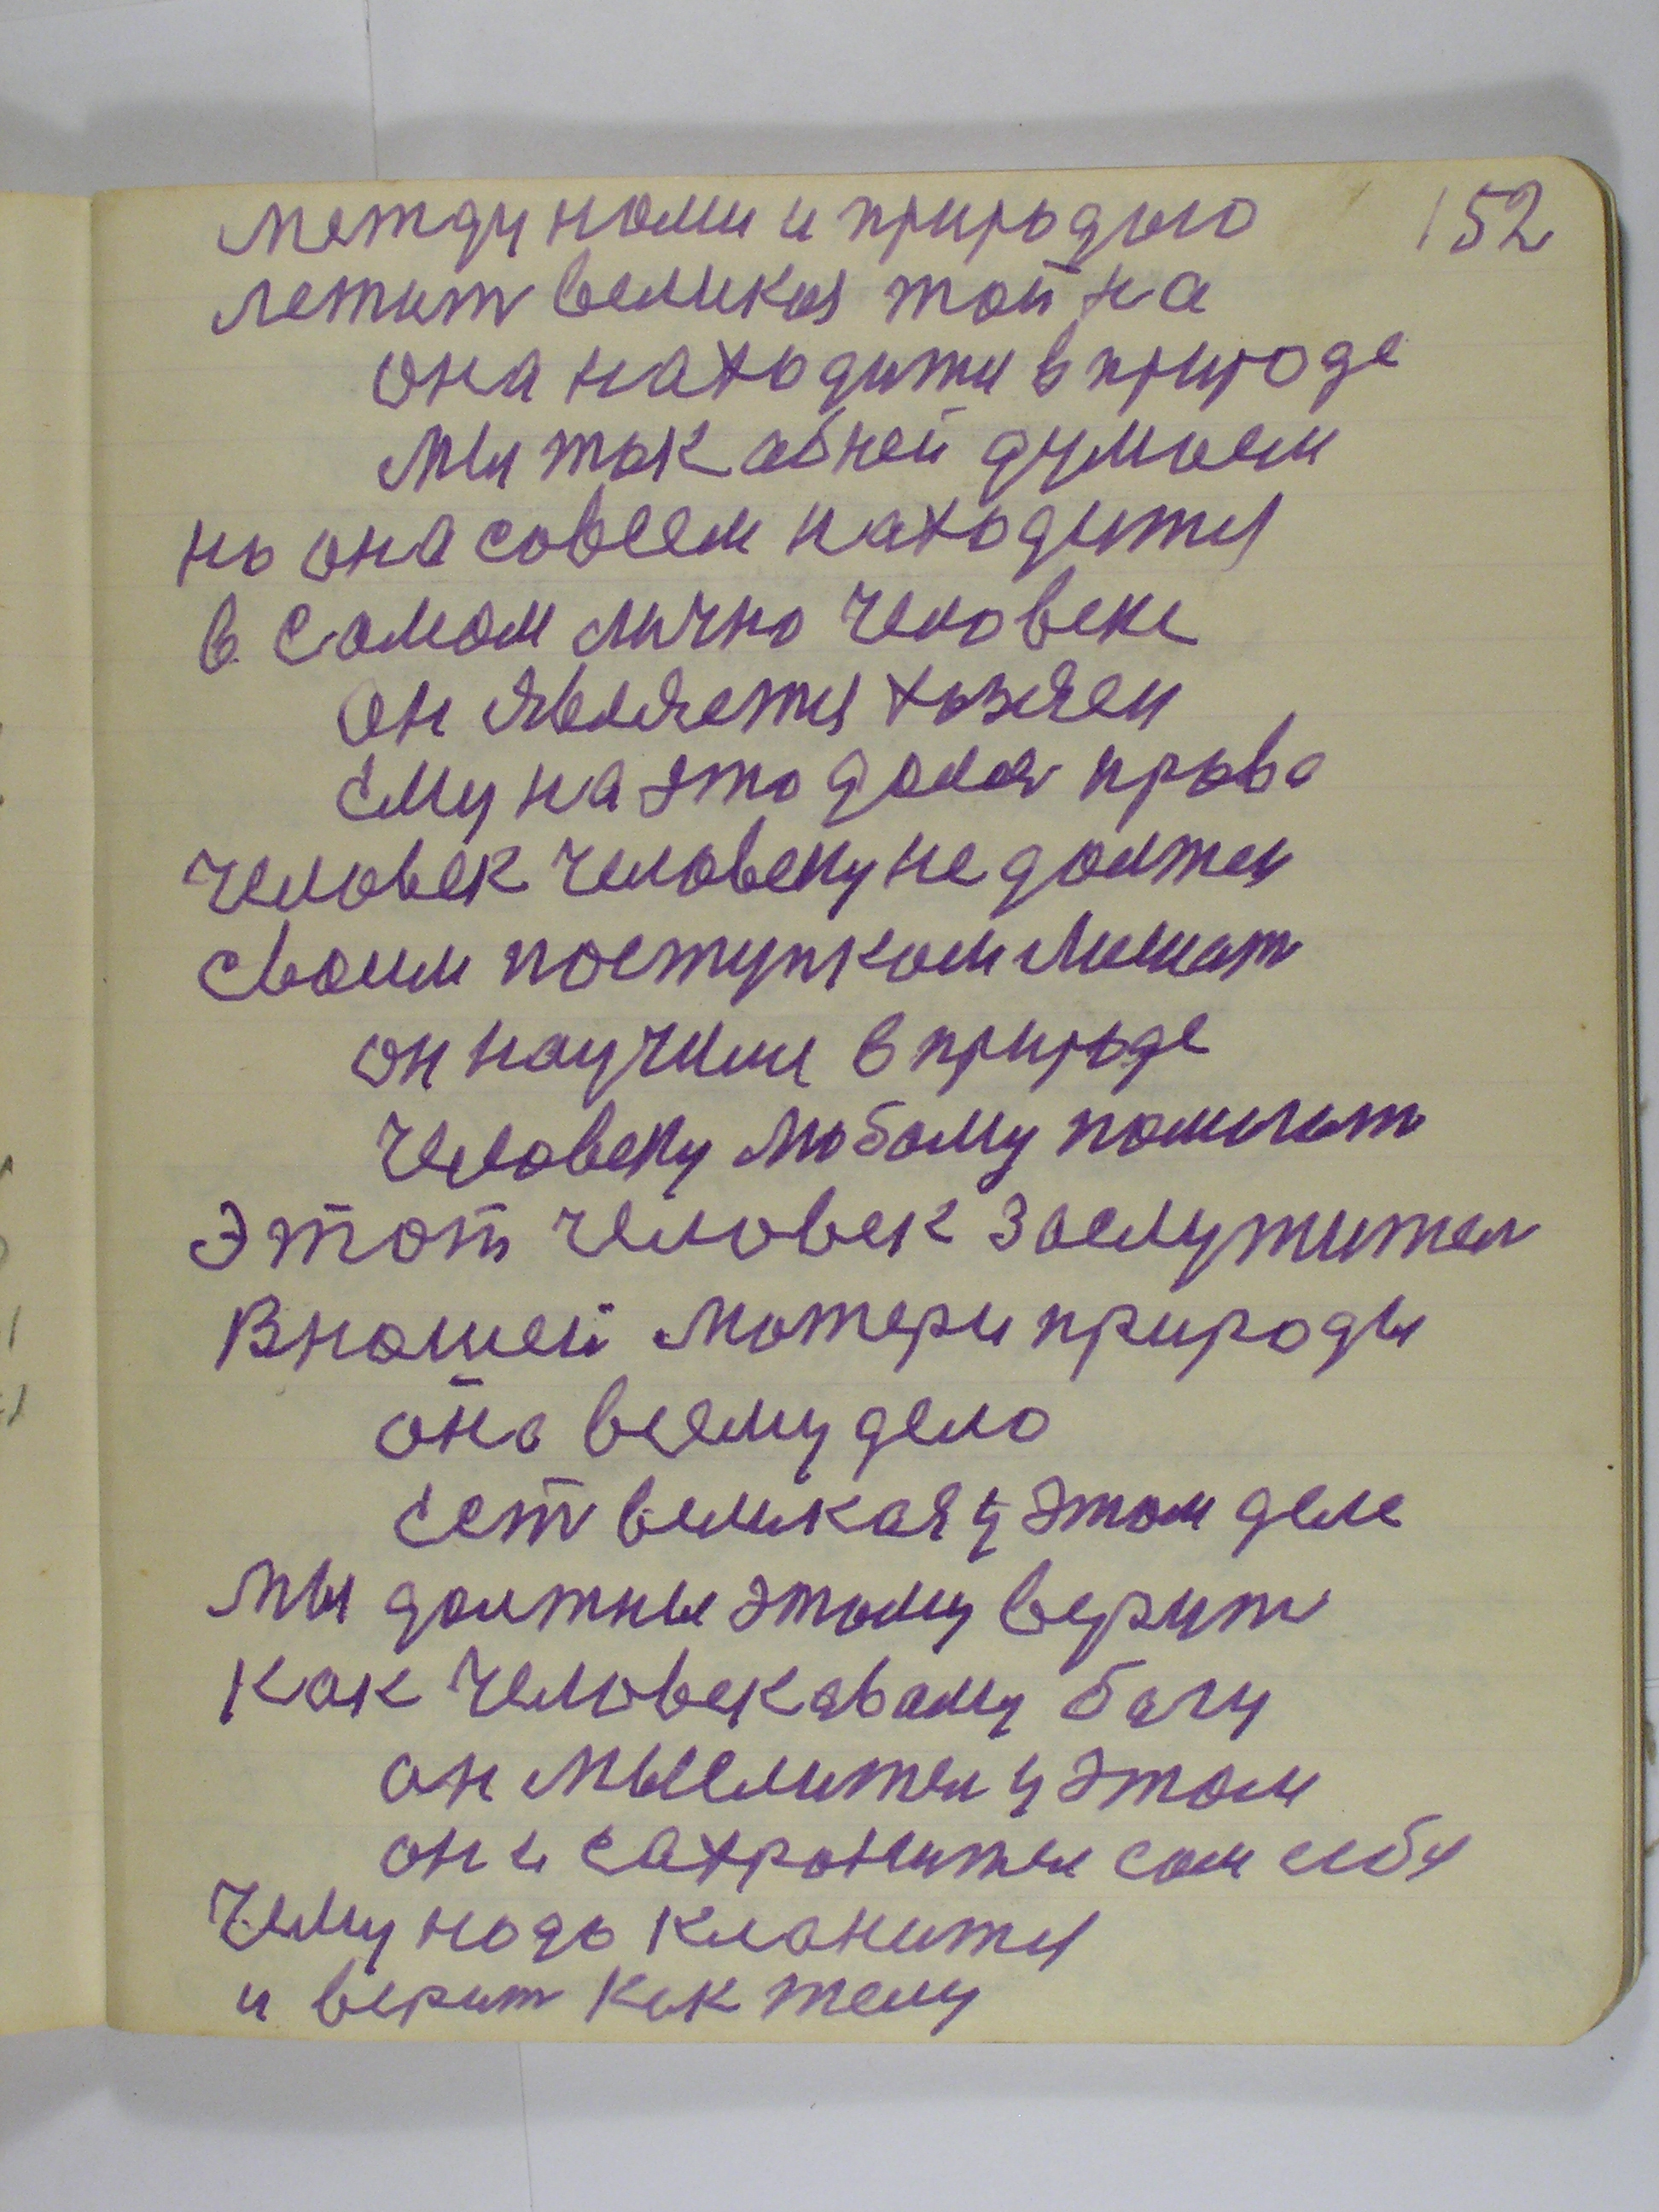 152
между нами и природыю
лежит великая тайна
она находится в природе
мы так обней думаем
но она совсем находится
в самом лично человеке
он является хозяен
ему на это дала права
человек человеку не должен
своим поступком мешат
он научился в природе
человеку любому помигат
Этот человек заслужител
В нашей матери природы
она всему дело
ест великая у этом деле
мы должны этому верит
как человекавому багу
он мыслител у этом
он и сахранител сам себя
чему надо кланится
и верит как тему